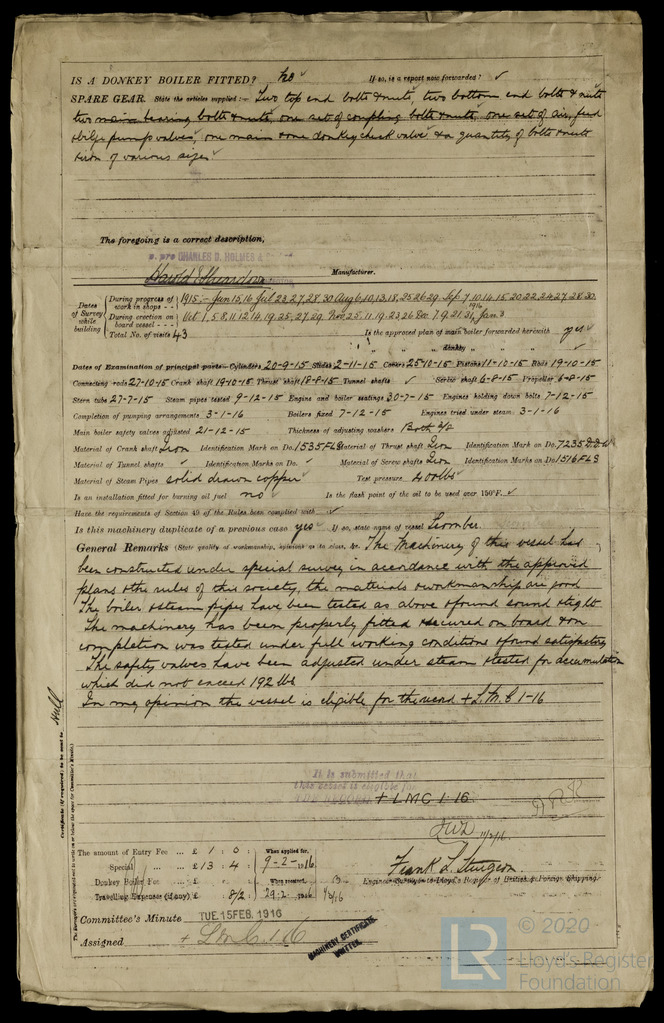 IS A DONKEY BOILER FITTED? no ✓ If so, is a report now forwarded? ✓
SPARE GEAR. State the articles supplied:— Two top end bolts & nuts, two bottom end bolts & nuts
two main bearing bolts & nuts, one set of coupling bolts & nuts, one set of air, feed
& bilge pump valves, one main & one donkey check valve & a quantity of bolts & nuts
& iron of various sizes ✓
The foregoing is a correct description,
p. pro CHARLES D. HOLMES &
Harold Manufacturer.
Dates of Survey while building
During progress of work in shops - - 1915:- Jan 15, 16 Jul 23, 27, 28, 30 Aug 6, 10, 13, 18, 25, 26, 29 Sep 7, 10, 14, 15, 20, 22, 24, 27, 28, 30
During erection on board vessel - - - Oct 1, 5, 8, 11, 12, 14, 19, 25, 27, 29, Nov 25, 11, 19, 23, 26 Dec 7, 9, 21, 31, 1916 Jan 3
Total No. of visits 43 Is the approved plan of main boiler forwarded herewith yes ✓
" " " donkey " " " ✓
Dates of Examination of principal parts—Cylinders 20-9-15 Slides 2-11-15 Covers 25-10-15 Pistons 11-10-15 Rods 19-10-15
Connecting rods 27-10-15 Crank shaft 19-10-15 Thrust shaft 18-8-15 Tunnel shafts ✓ Screw shaft 6-8-15 Propeller 6-8-15
Stern tube 27-7-15 Steam pipes tested 9-12-15 Engine and boiler seatings 30-7-15 Engines holding down bolts 7-12-15
Completion of pumping arrangements 3-1-16 Boilers fixed 7-12-15 Engines tried under steam 3-1-16
Main boiler safety valves adjusted 21-12-15 Thickness of adjusting washers Both
Material of Crank shaft Iron Identification Mark on Do. 1535FLS Material of Thrust shaft Iron Identification Mark on Do. 7235
Material of Tunnel shafts ✓ Identification Marks on Do. ✓ Material of Screw shafts Iron Identification Marks on Do. 1516FLS
Material of Steam Pipes solid drawn copper ✓ Test pressure 400 lbs
Is an installation fitted for burning oil fuel no ✓ Is the flash point of the oil to be used over 150°F. ✓
Have the requirements of Section 49 of the Rules been complied with ✓
Is this machinery duplicate of a previous case yes ✓ If so, state name of vessel
General Remarks (State quality of workmanship, opinions as to class, &c. The Machinery of this vessel has
been constructed under special survey in accordance with the approved
plans & the rules of this society, the materials & workmanship are good
The boiler & steam pipes have been tested as above & found sound & tight
The machinery has been properly fitted & secured on board & on
completion was tested under full working conditions & found satisfactory
The safety valves have been adjusted under steam & tested for accumulation
which did not exceed 192 lbs
In my opinion the vessel is eligible for the record + L.M.C 1-16
It is submitted that
this vessel is eligible for
THE RECORD + LMC 1·16
11/2/16
Certificate (if required) to be sent to Hull
The amount of Entry Fee ... £ 1 : 0 : When applied for,
Special ... £ 13 : 4 : 9-2-1916
Donkey Boiler Fee ... £ : : When received,
Travelling Expenses (if any) £ : 8/2 : 29-2-1916
Frank L. Sturgeon
Engineer Surveyor to Lloyd's Register of British & Foreign Shipping.
Committee's Minute TUE. 15 FEB. 1916
Assigned + L M C 1.16
MACHINERY CERTIFICATE
WRITTEN.
© 2020
LR
Lloyd's Register
Foundation